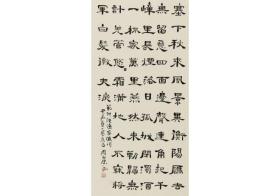 塞下秋來風景異衡陽雁去
無留意四面邊聲連角起千
嶂里長煙落日孤城閉濁酒
一杯家萬里燕然未勒歸無
計羌管悠悠霜滿地人不寐將
軍白髮征夫淚
范仲淹漁家傲